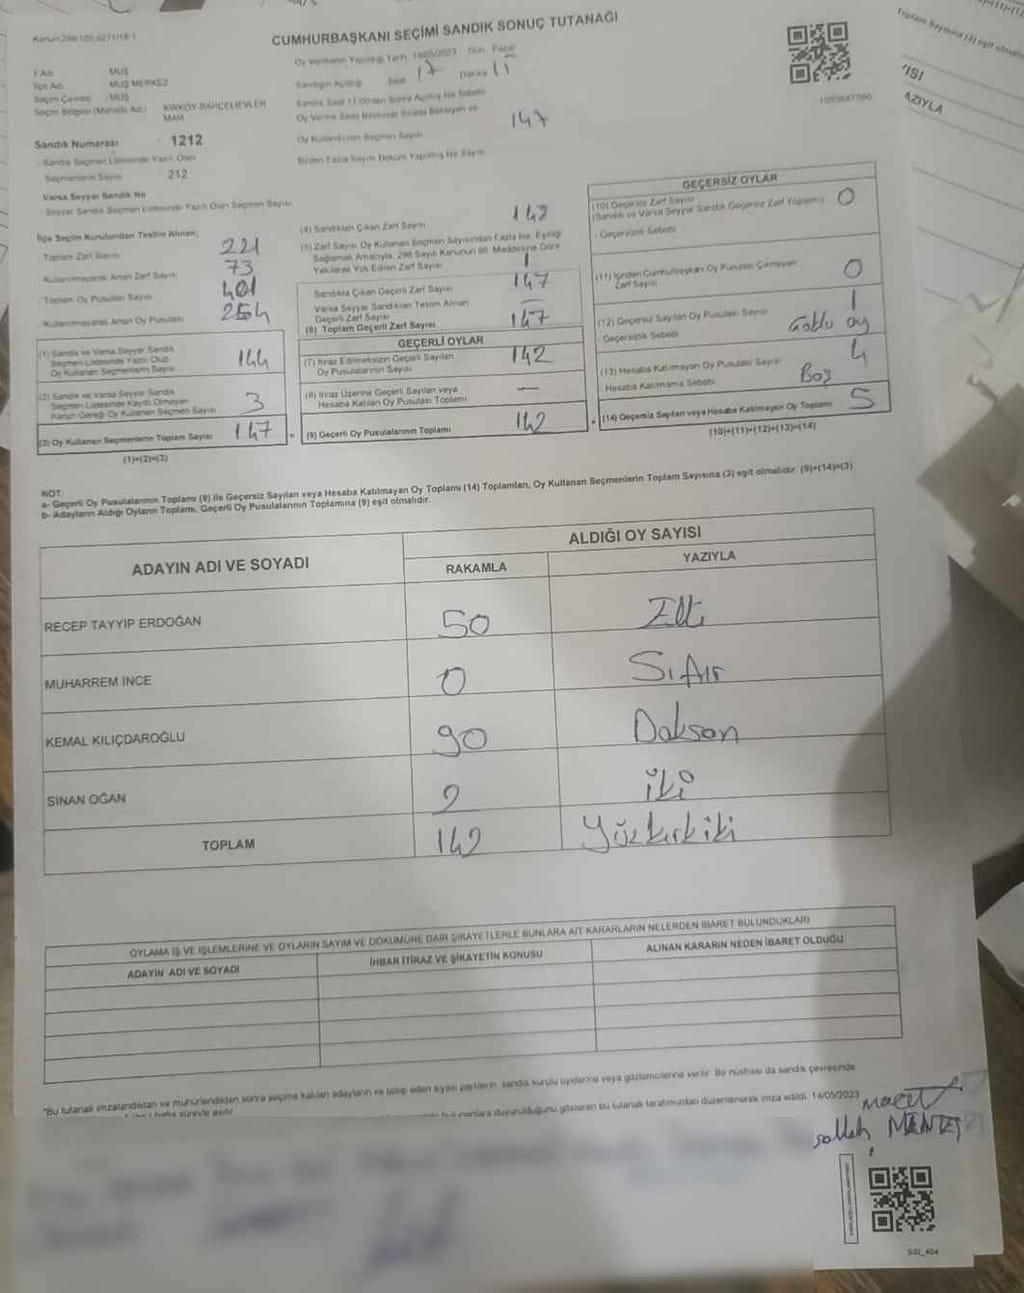 CUMHURBAŞKANI SEÇİMİ SANDIK SONUÇ TUTANAĞI
Oy Vermenin Yapıldığı Tarih 14/05/2023 Gün Pazar
İl Adı MUŞ
İlçe Adı MUŞ MERKEZ
Seçim Çevresi : MUŞ
Seçim Bölgesi (Mahalle Adı)
Sandığın Açıldığı Saat 17 Dakika 15
147
Sandık Numarası : 1212
Sandık Seçmen Listesinde Yazılı Olan
Seçmenlerin Sayısı 212
Varsa Seyyar Sandık No
Seyyar Sandık Seçmen Listesinde Yazılı Olan Seçmen Sayısı
İlçe Seçim Kurulundan Teslim Alınan;
Toplam Zarf Sayısı 221
Kullanılmayarak Artan Zarf Sayısı 73
Toplam Oy Pusulası Sayısı 401
Kullanılmayarak Artan Oy Pusulası 254
(1) Sandık ve Varsa Seyyar Sandık
Seçmen Listesinde Yazılı Olup
Oy Kullanan Seçmenlerin Sayısı 144
(2) Sandık ve Varsa Seyyar Sandık
Seçmen Listesinde Kayıtlı Olmayan
Kanun Gereği Oy Kullanan Seçmen Sayısı 3
(3) Oy Kullanan Seçmenlerin Toplam Sayısı 147
(1)+(2)=(3)
(4) Sandıktan Çıkan Zarf Sayısı
(5) Zarf Sayısı Oy Kullanan Seçmen Sayısından Fazla İse, Eşitliği
Sağlamak Amacıyla, 298 Sayılı Kanunun 98. Maddesine Göre
Yakılarak Yok Edilen Zarf Sayısı 1
Sandıkta Çıkan Geçerli Zarf Sayısı 147
Varsa Seyyar Sandıktan Teslim Alınan
Geçerli Zarf Sayısı —
(6) Toplam Geçerli Zarf Sayısı 147
GEÇERLİ OYLAR
(7) İtiraz Edilmeksizin Geçerli Sayılan
Oy Pusulalarının Sayısı 142
(8) İtiraz Üzerine Geçerli Sayılan veya
Hesaba Katılan Oy Pusulası Toplamı —
(9) Geçerli Oy Pusulalarının Toplamı 142
GEÇERSİZ OYLAR
(10) Geçersiz Zarf Sayısı 0
(Sandık ve Varsa Seyyar Sandık Geçersiz Zarf Toplamı)
- Geçersizlik Sebebi
(11) İçinden Cumhurbaşkanı Oy Pusulası Çıkmayan
Zarf Sayısı 0
(12) Geçersiz Sayılan Oy Pusulası Sayısı 1
- Geçersizlik Sebebi oy
(13) Hesaba Katılmayan Oy Pusulası Sayısı 4
- Hesaba Katılmama Sebebi Boş
(14) Geçersiz Sayılan veya Hesaba Katılmayan Oy Toplamı 5
(10)+(11)+(12)+(13)=(14)
NOT:
a- Geçerli Oy Pusulalarının Toplamı (9) ile Geçersiz Sayılan veya Hesaba Katılmayan Oy Toplamı (14) Toplamları, Oy Kullanan Seçmenlerin Toplam Sayısına (3) eşit olmalıdır. (9)+(14)=(3)
b- Adayların Aldığı Oyların Toplamı, Geçerli Oy Pusulalarının Toplamına (9) eşit olmalıdır.
ADAYIN ADI VE SOYADI
ALDIĞI OY SAYISI
RAKAMLA YAZIYLA
RECEP TAYYİP ERDOĞAN 50 Elli
MUHARREM İNCE 0 Sıfır
KEMAL KILIÇDAROĞLU 90 Doksan
SİNAN OĞAN 2 iki
TOPLAM 142 Yüzkırkiki
OYLAMA İŞ VE İŞLEMLERİNE VE OYLARIN SAYIM VE DÖKÜMÜNE DAİR ŞİKAYETLERLE BUNLARA AİT KARARLARIN NELERDEN İBARET BULUNDUKLARI
ADAYIN ADI VE SOYADI İHBAR İTİRAZ VE ŞİKAYETİN KONUSU ALINAN KARARIN NEDEN İBARET OLDUĞU
*Bu tutanak imzalandıktan ve mühürlendikten sonra seçime katılan adayların ve talep eden siyasi partilerin sandık kurulu üyelerine veya gözlemcilerine verilir. Bir nüshası da sandık çevresinde
duyurulduğunu gösteren bu tutanak tarafımızdan düzenlenerek imza edildi. 14/05/2023
YAZIYLA